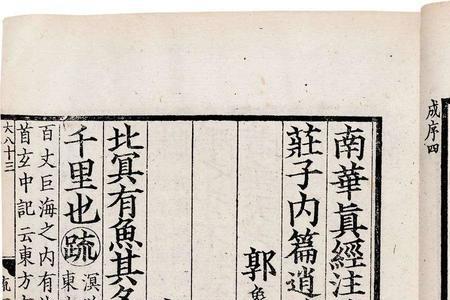 成序四
南華眞經注
莊子内篇逍
郭
北冥有魚其名
千里也疏
溟
東
百丈巨海之内有
首玄中記云東方
大八十三